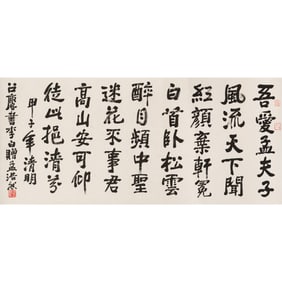 吾愛孟夫子
風流天下聞
紅顏棄軒冕
白首臥松雲
醉月頻中聖
迷花不事君
高山安可仰
徒此挹清芬
甲子年清明
書李白贈孟浩然